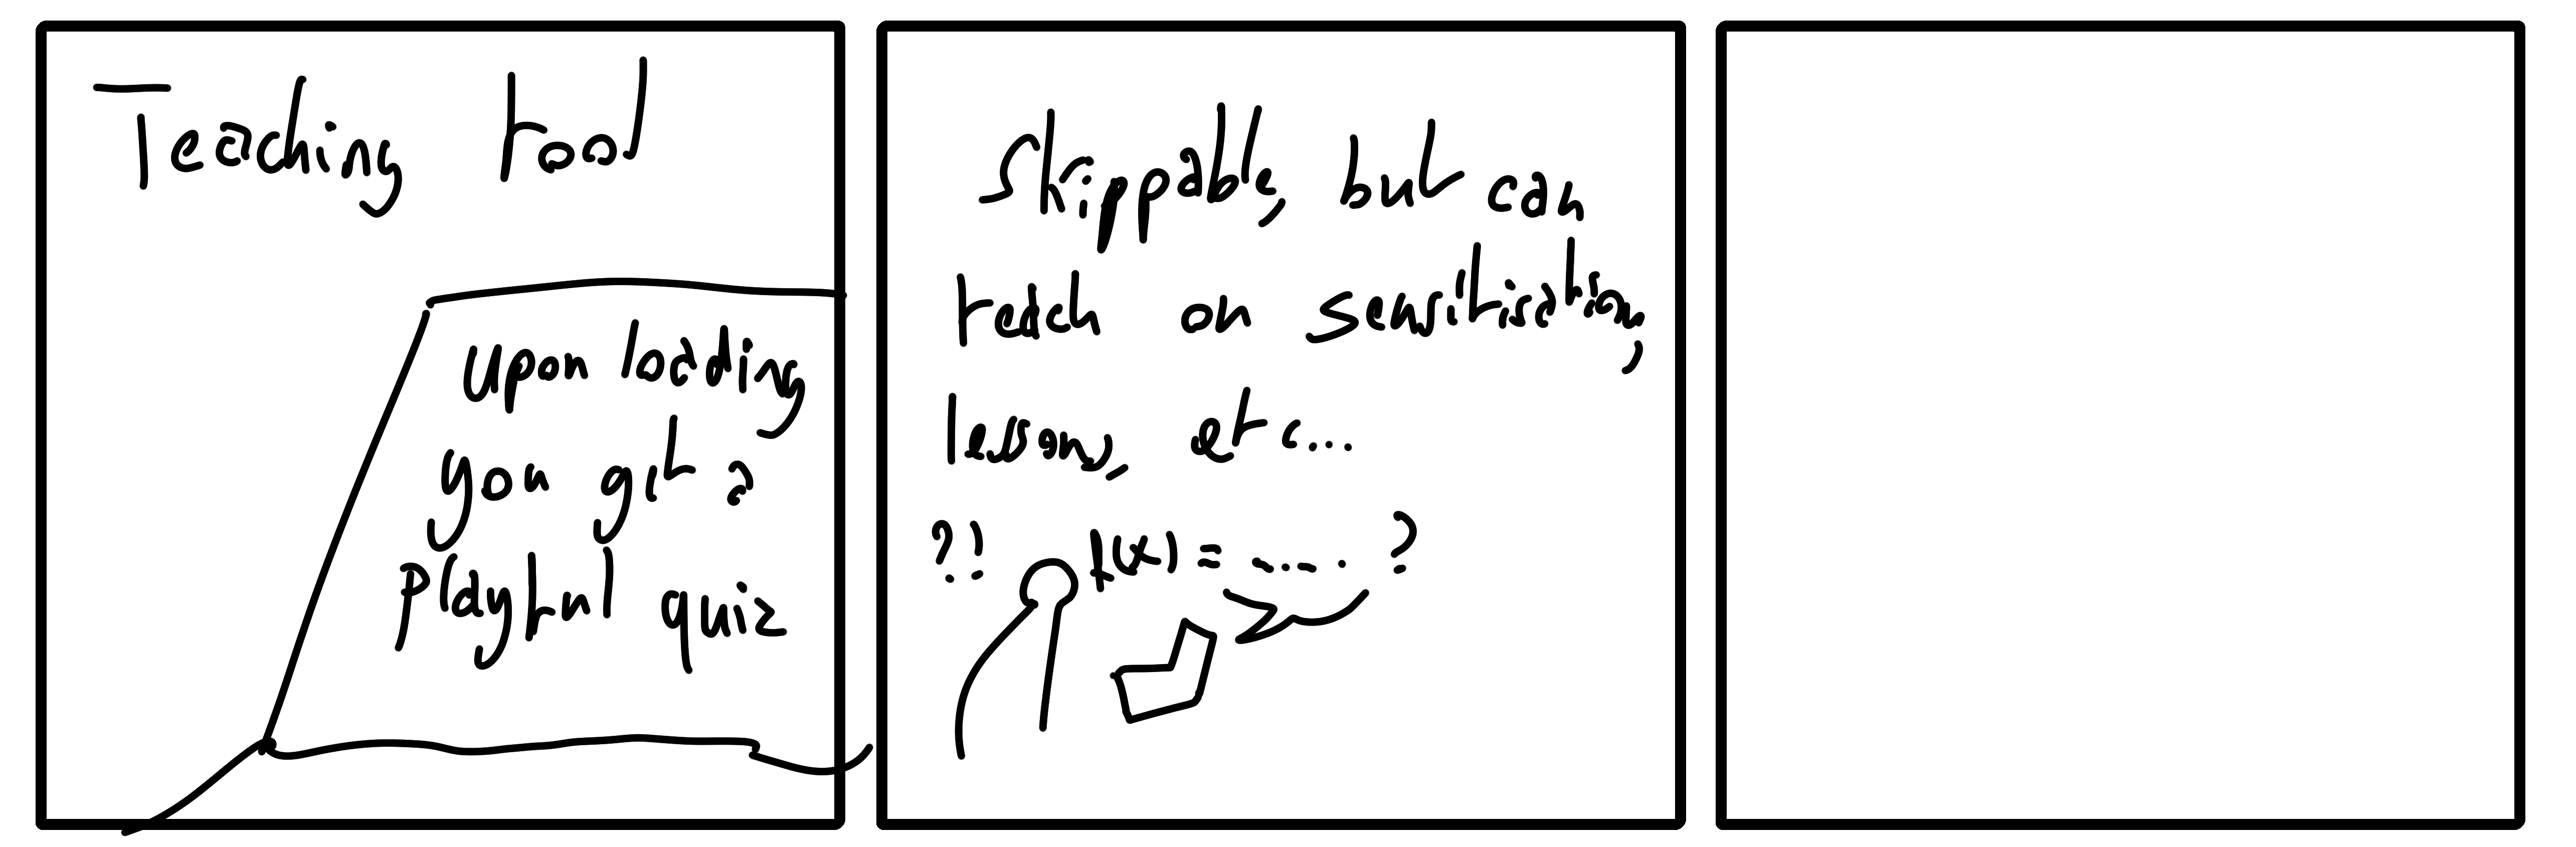 Teaching tool
Upon loading
you get a
playful quiz
Skippable, but can
teach on sensitisation,
lesson, etc...
?! f(x) = ..... ?